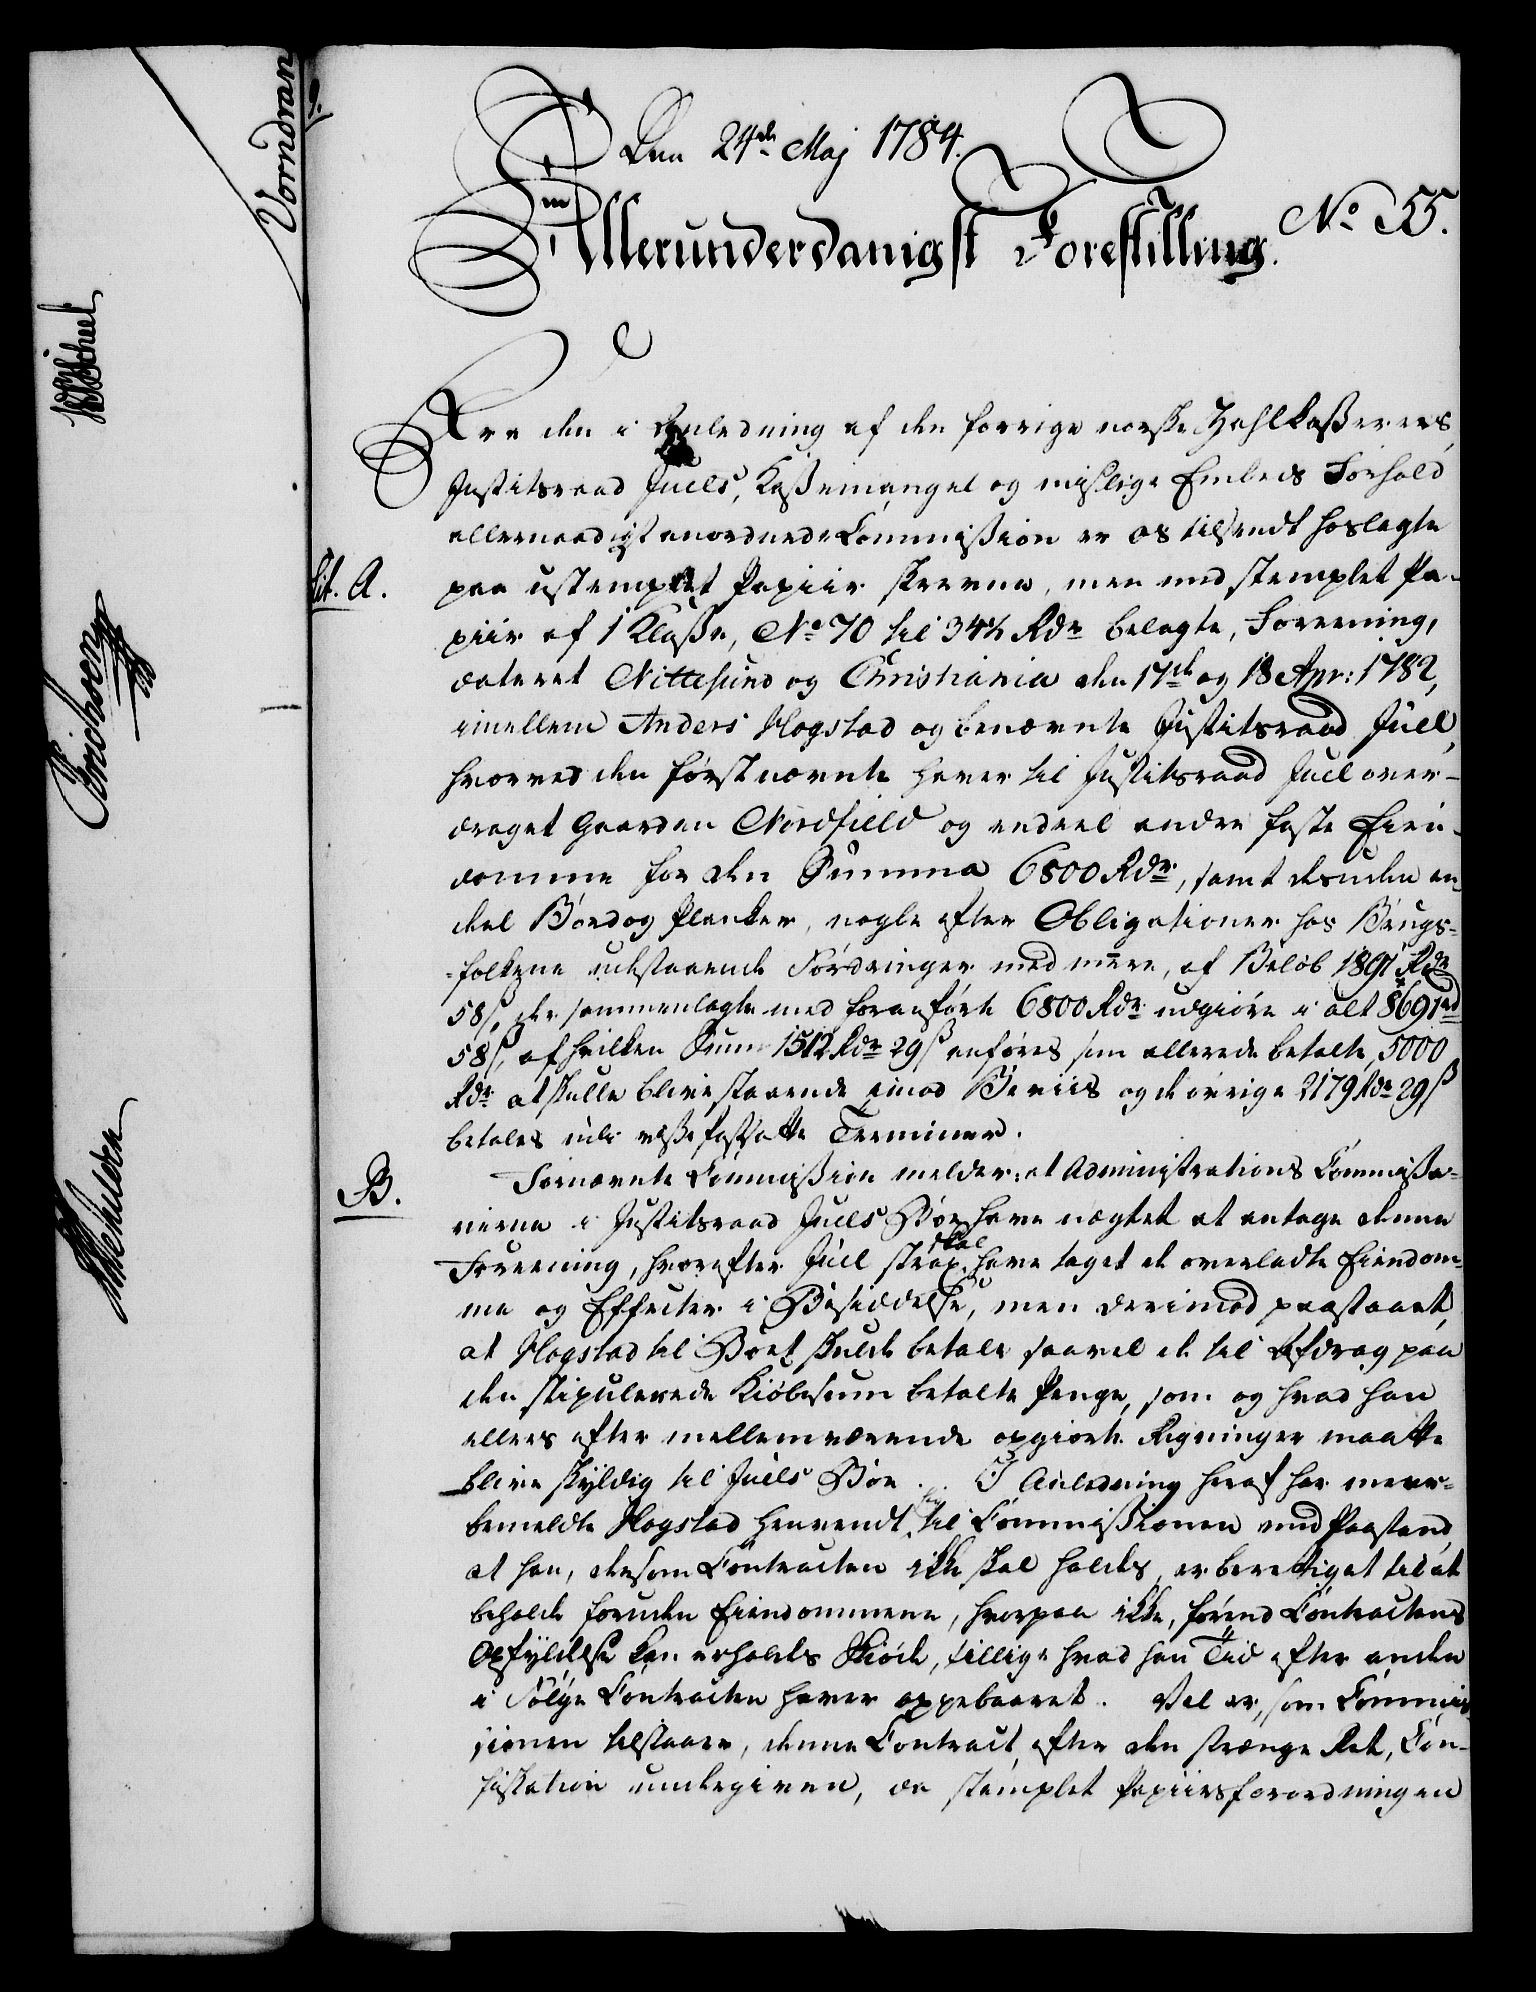 Den 24de Maj 1784.
No 55.
Allerunderdanigst Forestilling.
Fra den i Anledning af den forrige norske Zahlkasserers
Justitsraad Juels, Kassemangel og mislige Embeds Forhold
allernaadigst anordnede Commission er os tilsendt hoslagte
Lit. A. paa ustemplet Papiir skrevne, men med stemplet Pa-
piir af 1 Klasse, No 70 til 34½ Rdr belagte, Foreening,
dateret Nittesund og Christiania den 17de og 18 Apr: 1782,
imellem Anders Hogstad og benævnte Justitsraad Juel,
hvorved den førstnævnte haver til Justitsraad Juel over-
draget Gaarden Nordfield og endeel andre faste Eien-
domme for den Summa 6800 Rdr, samt desuden en-
deel Bord og Planker, nogle efter Obligationer hos Brugs-
-folkene udestaaende Fordringer med mere, af Beløb 1891 Rdr
58 s, der sammenlagte med foranførte 6800 Rdr udgiøre i alt 8691 rd
58 s, af hvilken Sum 1512 Rdr 29 s anføres som allerede betalte, 5000
Rdr at skulle blive staaende imod Beviis og de øvrige 2179 Rdr 29 s
betales udi visse fastsatte Terminer.
B. Fornævnte Commission melder: at Administrations Commissa-
rierne i Justitsraad Juels Boe have nægtet at antage denne
Foreening, hvorefter Juel strax skal have taget de overladte Eiendom-
me og Effecter i Besiddelse, men derimod paastaaet,
at Hogstad til Boet skulde betale saavel de til Afdrag paa
den stipulerede Kiøbesum betalte Penge, som og hvad han
ellers efter mellemværende opgiorte Regninger maatte
blive skyldig til Juels Boe. I Anledning heraf har meer-
bemeldte Hogstad henvendt sig til Commissionen med Paastand,
at han, dersom Contracten ikke skal holdes, er berettiget til at
beholde foruden Eiendommene, hvorpaa ikke, førend Contractens
Opfyldelse kan erholdes Skiøde, tillige hvad han Tid efter anden
i Følge Contracten haver oppebaaret. Vel er, som Commis-
sionen tilstaaer, denne Contract, efter den strænge Ret, Con-
fiskation undergiven, da stemplet Papiirsforordningen
Vorndran
Erichsen